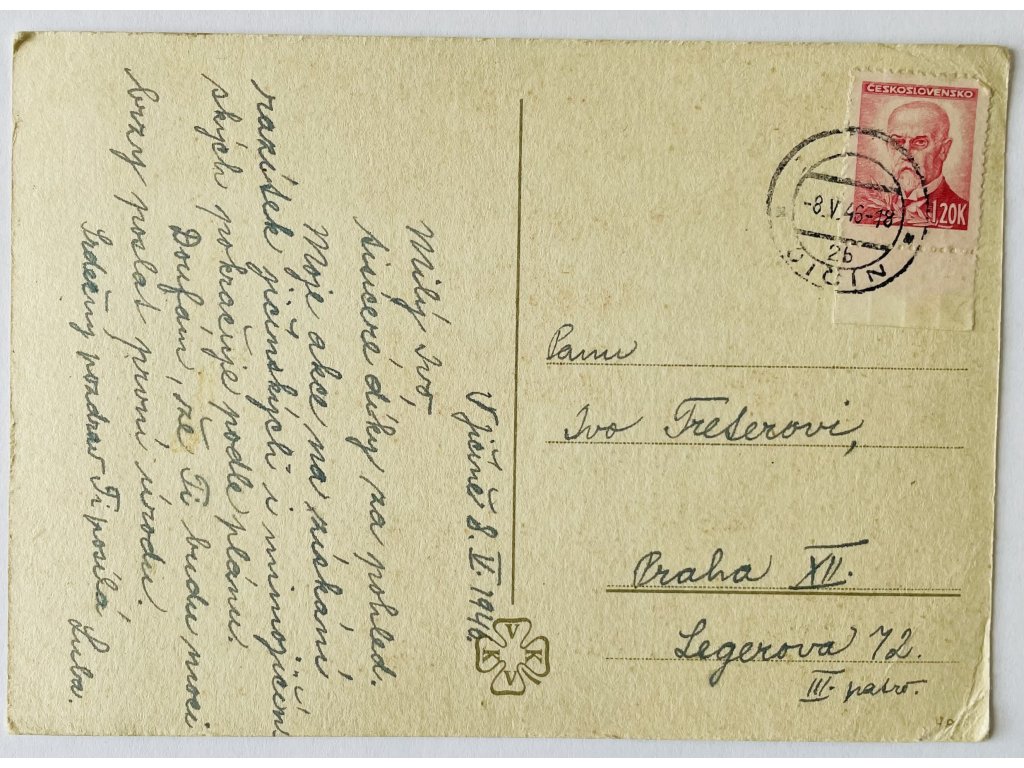 V Jičíně 8. V. 1946
Milý Ivo,
sincere díky za pohled.
Moje akce na získání
razítek jičínských i mimojičín
ských pokračuje podle plánu.
Doufám, že Ti budu moci
brzy poslat první úrodu.
Srdečný pozdrav Ti posílá Luba.
ČESKOSLOVENSKO
1,20K
-8.V.46-18
2b
JIČÍN
Panu
Ivo Trešerovi,
Praha XII.
Legerova 72.
III. patro.
V K V K